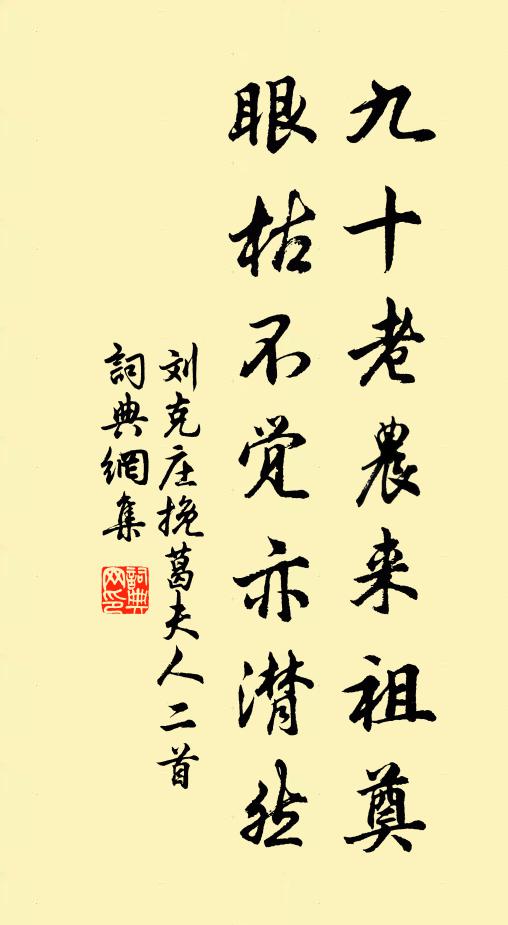 九十老農来祖奠
眼枯不觉亦潸然
刘克庄挽葛夫人二首
詞典網集
詞典网印